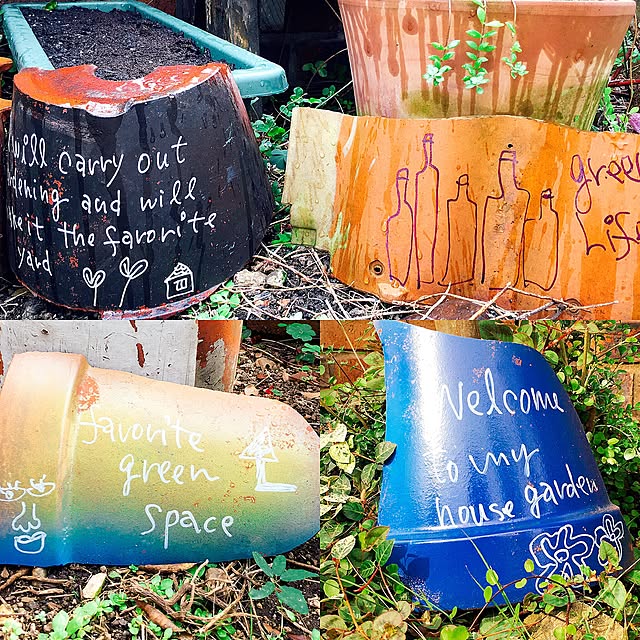 will carry out
dening and will
ke it the favorite
yard
green
Life
favorite
green
space
Welcome
to my
house garden